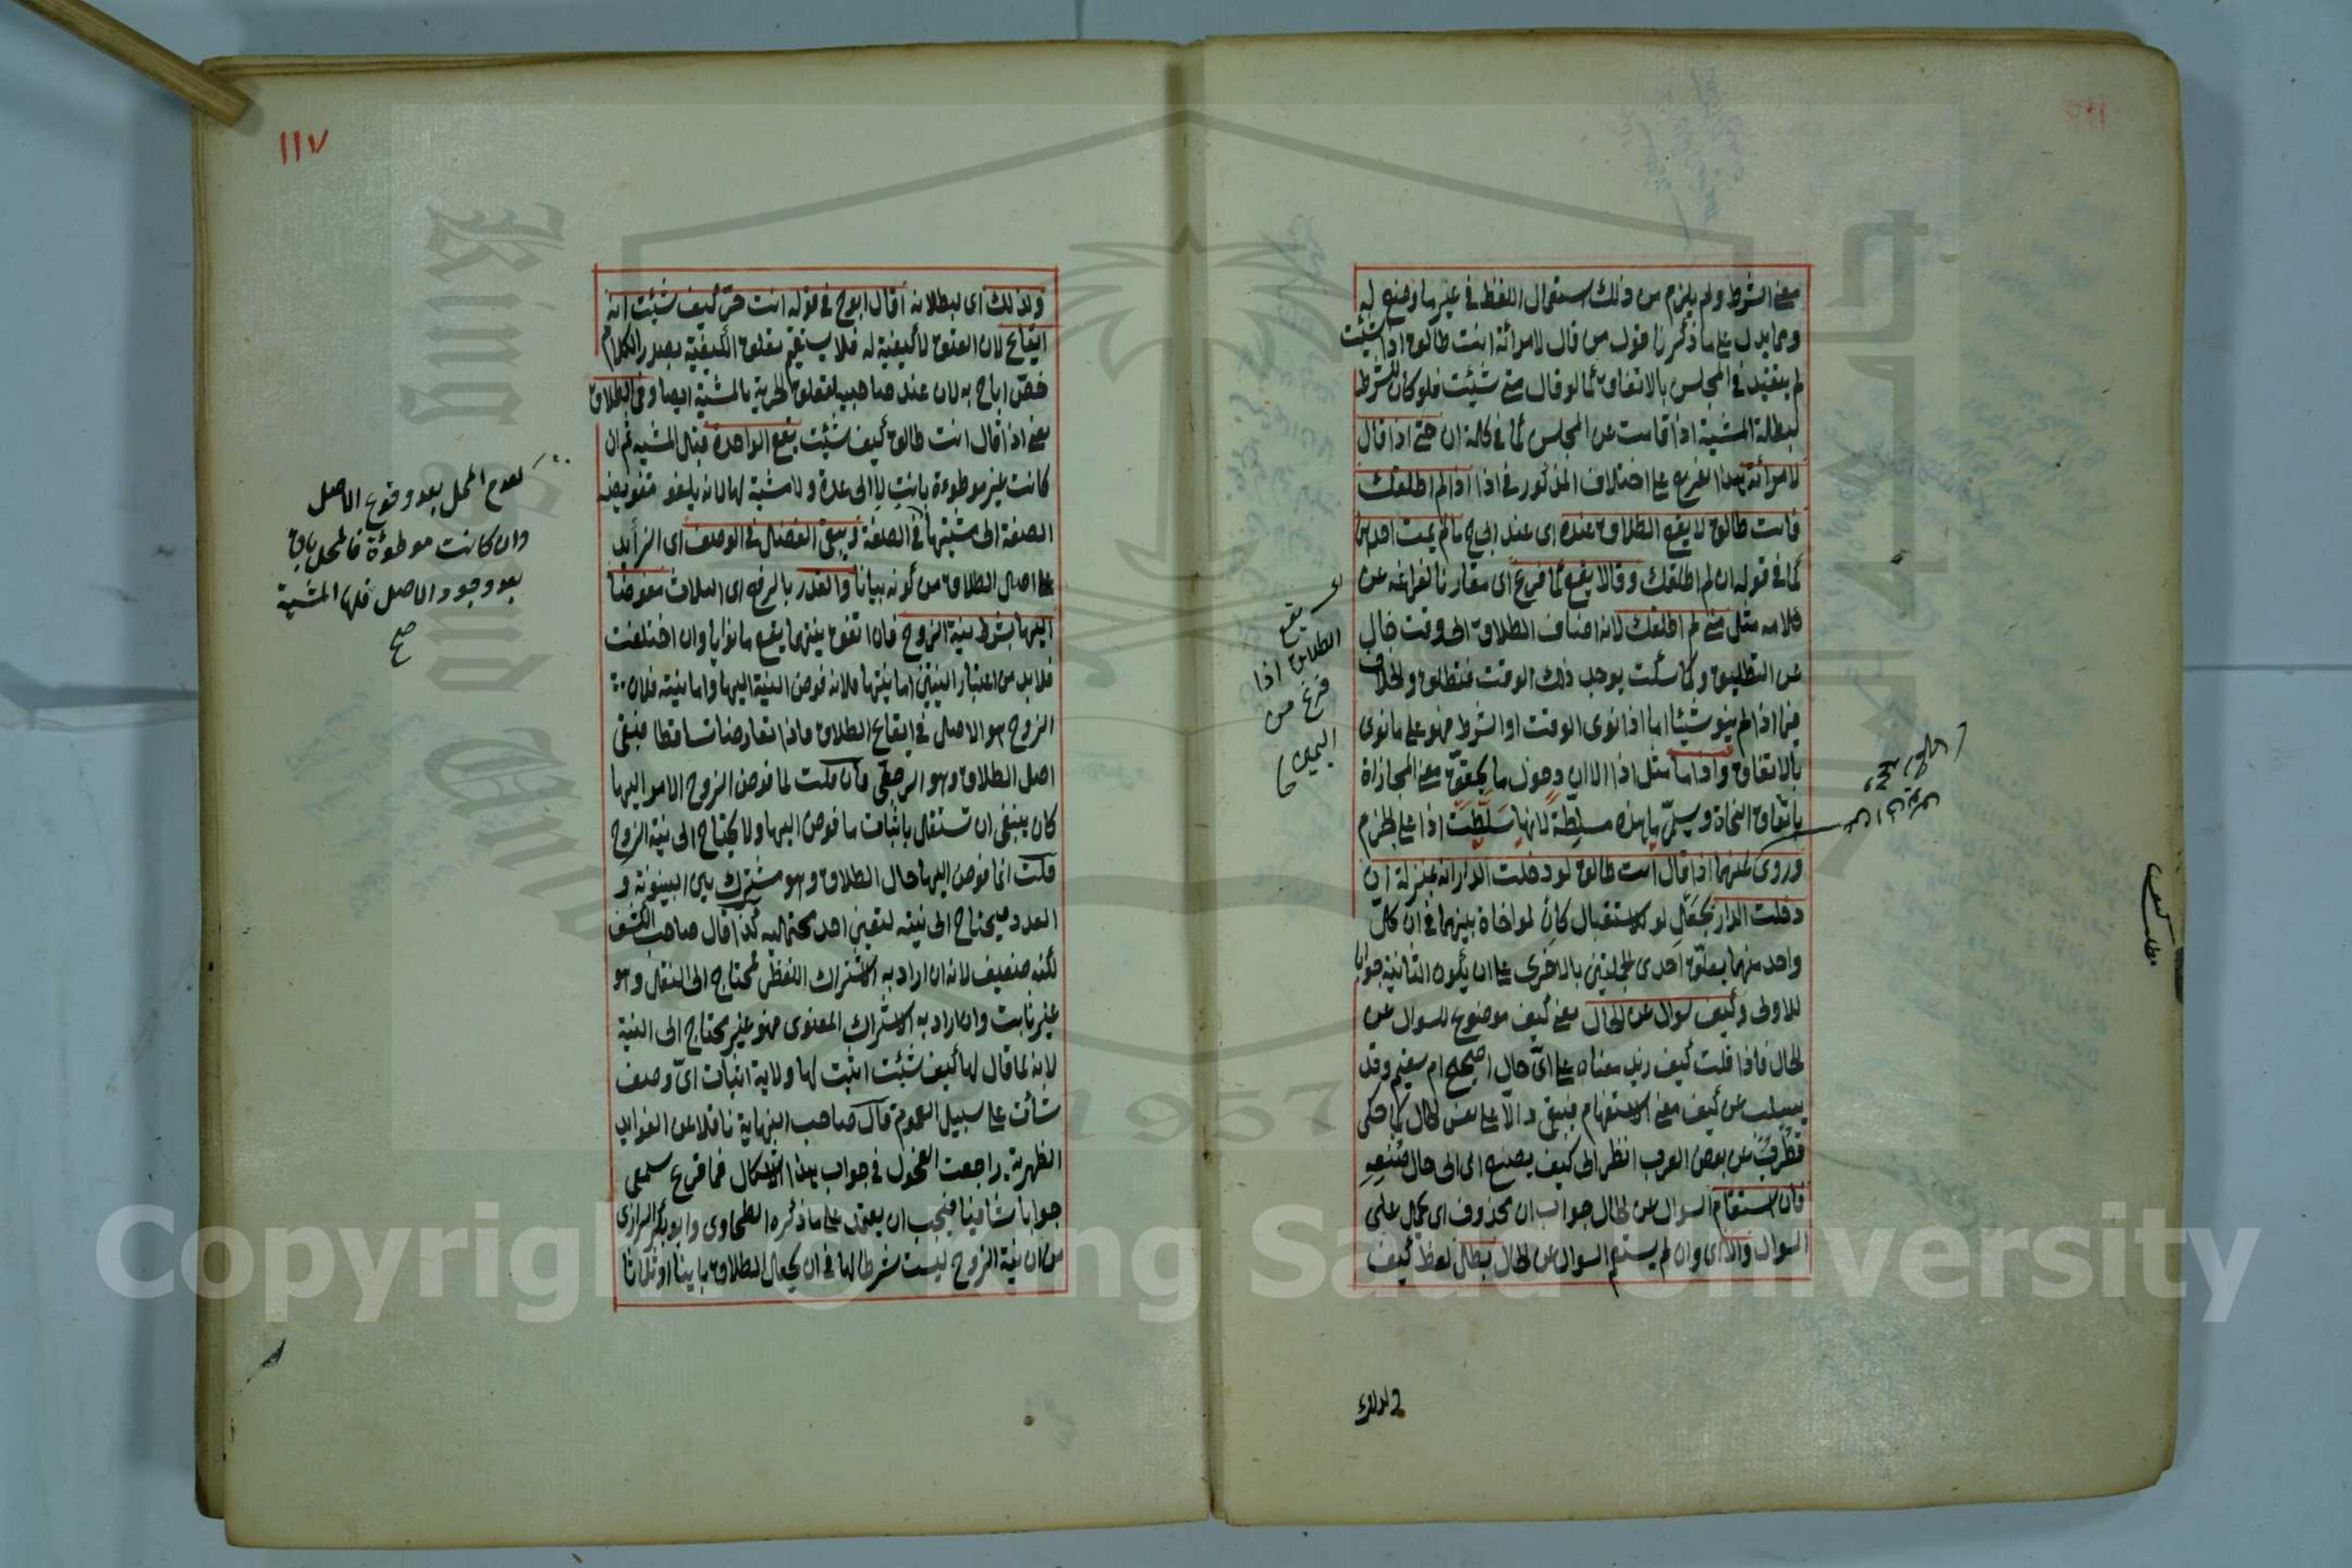 معنى الشرط ولم يلزم من ذلك استعمال اللفظ في غير ما وضع له
ومما يدل على ما ذكرنا قول من قال لامرأته انت طالق اذا شئت
لم يتقيد في المجلس بالاتفاق كما لو قال متى شئت فلو كان للشرط
لبطلت المشية اذا قامت عن المجلس كما في كلمة ان حتى اذا قال
لامرأته هذا تفريع على اختلاف المذكور في اذا اذا لم اطلقك
فانت طالق لا يقع الطلاق عنده اى عند ابي ح ما لم يمت احدهما
كما في قوله ان لم اطلقك وقالا يقع كما فرغ اى مقارنا لفراغه عن
كلامه مثل متى لم اطلقك لانه اضاف الطلاق الى وقت خال
عن التطليق وكما سكت يوجد ذلك الوقت فتطلق والخلاف
فيما اذا لم ينو شيئا اما اذا نوى الوقت او الشرط فهو على ما نوى
بالاتفاق واذا ما مثل اذا الا ان دخول ما يحقق معنى المجازاة
باتفاق النحاة ويسمى ما هذه مسلطة لانها سلطت اذا على الجزم
وروى عنهما اذا قال انت طالق لو دخلت الدار انه بمنزلة ان
دخلت الدار بجعل لو للاستقبال كان لمواخاة بينهما في ان كل
واحد منهما يعلق احدى الجملتين بالاخرى على ان يكون الثانية جوابا
للاولى وكيف سوال عن الحال يعنى كيف موضوع للسوال عن
الحال فاذا قلت كيف زيد معناه على اى حال اصحيح ام سقيم وقد
يسلب عن كيف معنى الاستفهام فيبقى دالا على نفس الحال كما حكى
قطرب عن بعض العرب انظر الى كيف يصنع اى الى حال صنعه
فان استقام السوال عن الحال جواب ان محذوف اى يحمل على
السوال والا اى وان لم يستقم السوال عن الحال بطل لفظ كيف
يقع
الطلاق اذا
فرغ من
اليمين
مطلب كيف
ولذلك
١١٧
ولذلك اى لبطلانه قال ابو ح في قوله انت حر كيف شئت انه
ايقاع لان العتق لا كيفية له فلا يستقيم تعلق الكيفية بصدر الكلام
خص ابا ح به لان عند صاحبيه يتعلق الحرية بالمشية ايضا وفي الطلاق
يعنى اذا قال انت طالق كيف شئت يقع الواحدة قبل المشية ثم ان
كانت غير موطوءة بانت لا الى عدة ولا مشية لها لانه يلغو تفويض
الصفة الى مشيتها في الصفة ويبقى الفضل في الوصف اى الزايد
على اصل الطلاق من كونه بيانا والقدر بالرفع اى الثلاث مفوضا
اليها بشرط نية الزوج فان اتفق نيتهما يقع ما نوايا وان اختلفت
فلا بد من اعتبار النيتين اما نيتها فلانه فوض النية اليها واما نيته فلان
الزوج هو الاصل في ايقاع الطلاق فاذا تعارضا تساقطا فبقى
اصل الطلاق وهو الرجعى فان قلت لما فوض الزوج الامر اليها
كان ينبغى ان تستقل باثبات ما فوض اليها ولا يحتاج الى نية الزوج
قلت انما فوض اليها حال الطلاق وهو مشترك بين البينونة و
العدد فيحتاج الى نيته لتعين احد محتمليه كذا قال صاحب الكشف
لكنه ضعيف لانه ان اراد به الاشتراك اللفظى فمحتاج الى النقل وهو
غير ثابت وان اراد به الاشتراك المعنوى فهو غير محتاج الى النية
لانه لما قال لها كيف شئت اثبت لها ولاية اثبات اى وصف
شائت على سبيل العموم قال صاحب النهاية ناقلا عن الفوايد
الظهرية راجعت الفحول في جواب هذا الاشكال فما قرع سمعى
جوابا شافيا فيجب ان يعتمد على ما ذكره الطحاوى وابو بكر الرازى
من ان نية الزوج ليست شرطا لها في ان يجعل الطلاق باينا او ثلاثا
لعدم المحل بعد وقوع الاصل
وان كانت موطوءة فالمحل باق
بعد وجود الاصل فلها المشية
صح
Copyright © King Saud University
1957